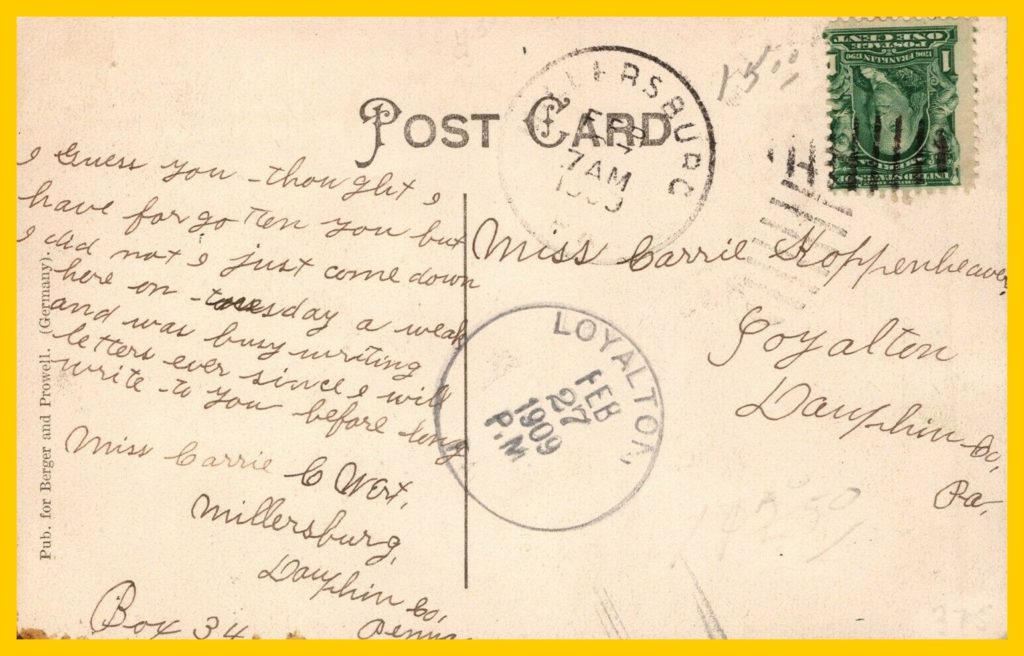 POST CARD
MILLERSBURG
FEB
27
7 AM
1909
1
POSTAGE
ONE CENT
1706 FRANKLIN 1790
UNITED STATES OF AMERICA
I Guess you thought I
have forgo tten you but
I did not I just come down
here on tuesday a weak
and was busy writing
letters ever since I will
write to you before long
Miss Carrie C Wert,
Millersburg,
Dauphin Co,
Penna
Box 34
Miss Carrie Hoppenheaver,
Loyalton
Dauphin Co,
Pa.
LOYALTON,
FEB
27
1909
P.M
Pub. for Berger and Prowell. (Germany).